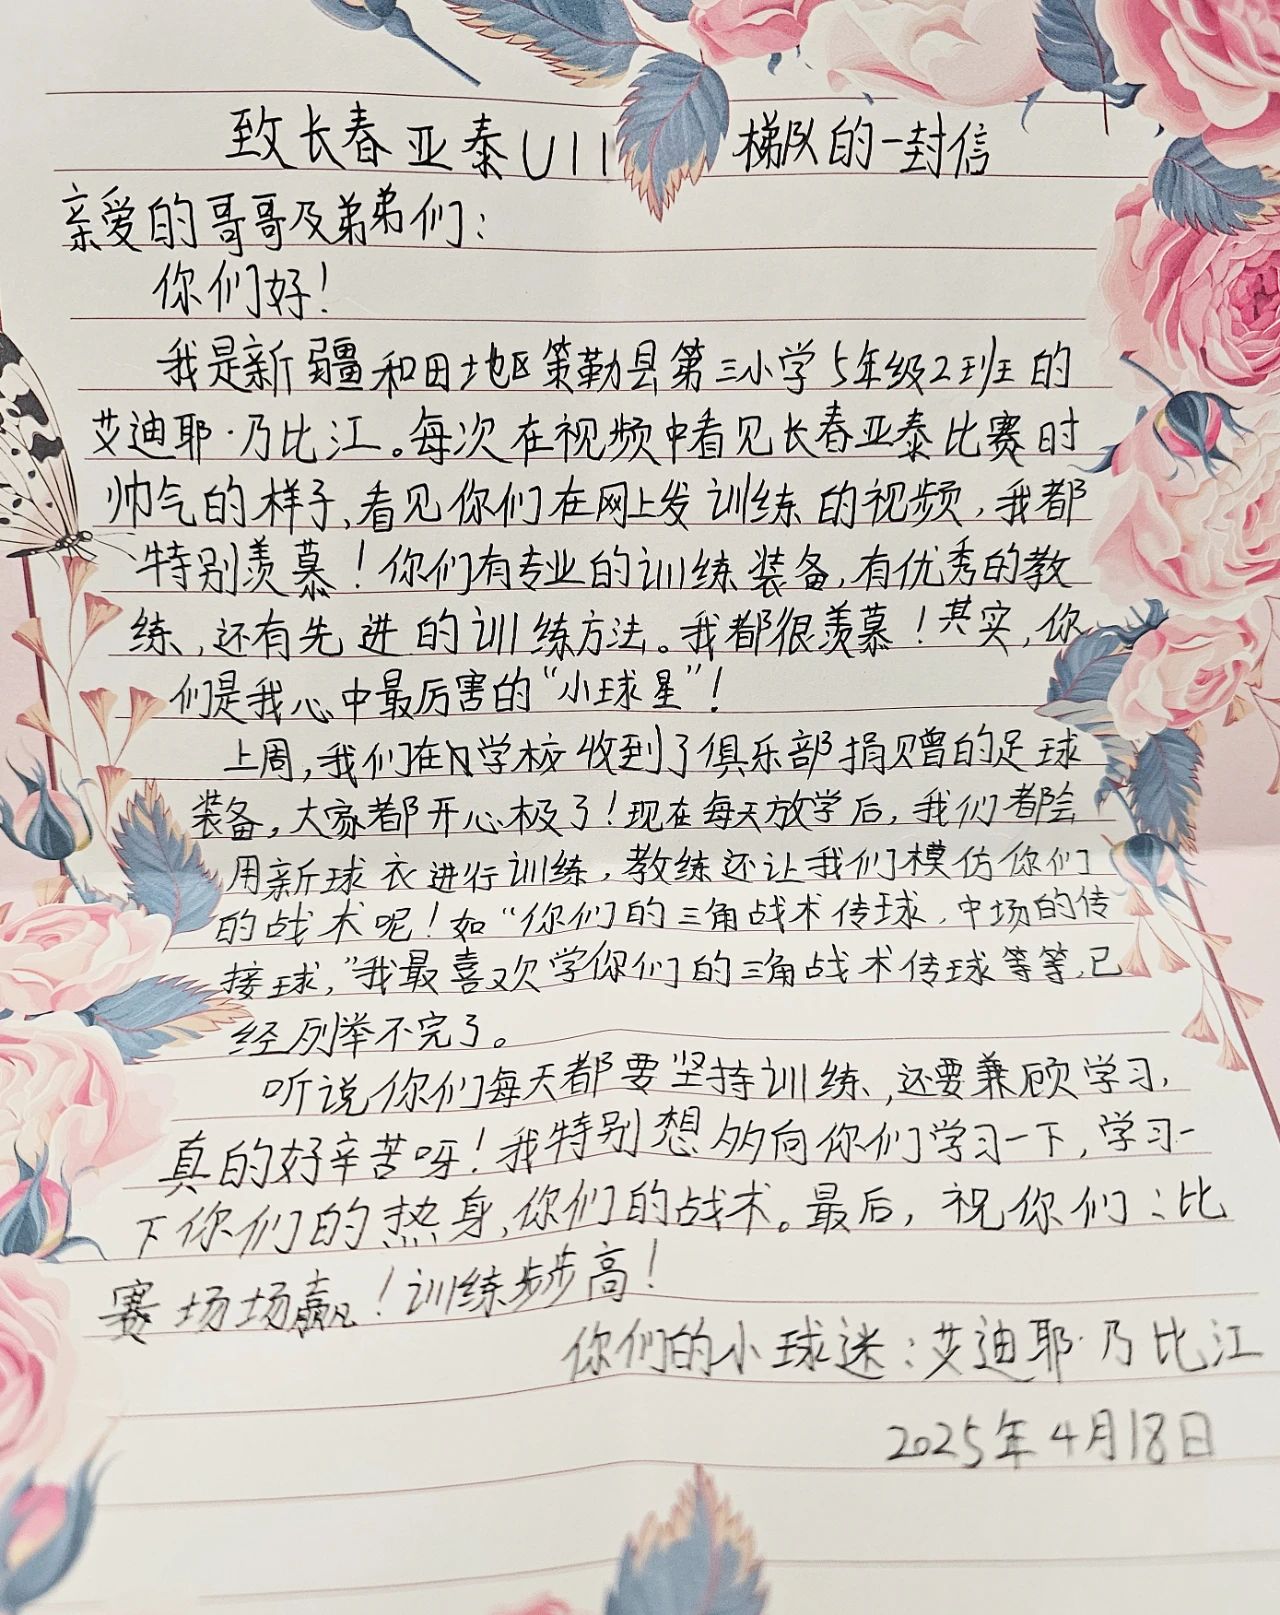 致长春亚泰U11 梯队的一封信
亲爱的哥哥及弟弟们：
你们好！
我是新疆和田地区策勒县第三小学5年级2班的
艾迪耶·乃比江。每次在视频中看见长春亚泰比赛时
帅气的样子，看见你们在网上发训练的视频，我都
特别羡慕！你们有专业的训练装备，有优秀的教
练，还有先进的训练方法。我都很羡慕！其实，你
们是我心中最厉害的“小球星”！
上周，我们在学校收到了俱乐部捐赠的足球
装备，大家都开心极了！现在每天放学后，我们都会
用新球衣进行训练，教练还让我们模仿你们
的战术呢！如“你们的三角战术传球，中场的传
接球，”我最喜欢学你们的三角战术传球等等，已
经列举不完了。
听说你们每天都要坚持训练，还要兼顾学习，
真的好辛苦呀！我特别想多向你们学习一下，学习一
下你们的热身，你们的战术。最后，祝你们：比
赛场场赢！训练步步高！
你们的小球迷：艾迪耶·乃比江
2025年4月18日